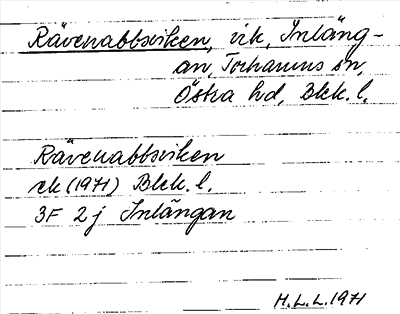 Rävenabbsviken, vik, Inläng-
an, Torhamns sn,
Östra hd, Blek. l.
Rävenabbsviken
ek (1971) Blek. l.
3F 2j Inlängan
H.L.L. 1971